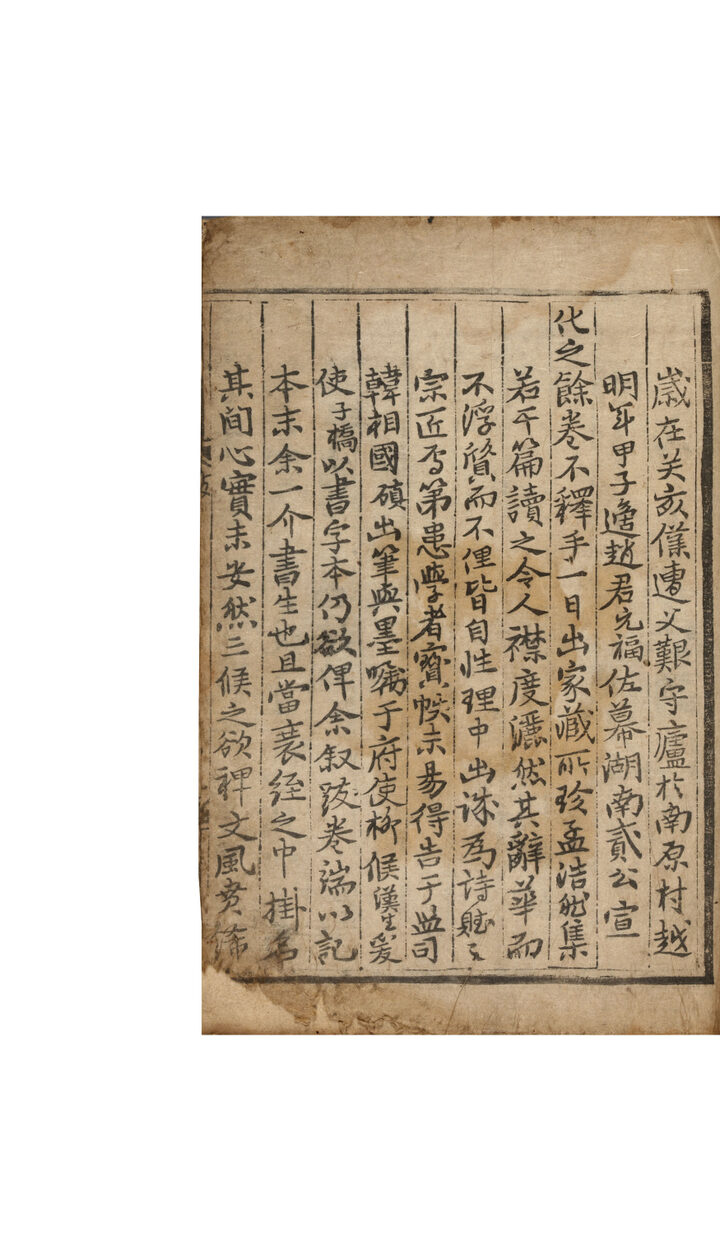 歲在关亥僕遭父艱守廬於南原村越
明年甲子適趙君元福佐幕湖南貳公宣
化之餘卷不釋手一日出家藏所珍孟浩然集
若干篇讀之令人襟度灑然其辭華而
不浮質而不俚皆自性理中出誠爲詩賦之
宗匠焉第患學者寶帙未易得告于監司
韓相國碩出筆與墨囑于府使柳侯漢生爰
使子橋以書字本仍欲俾余叙跋卷端以記
本末余一介書生也且當衰絰之中掛名
其間心實未安然三侯之欲裨文風